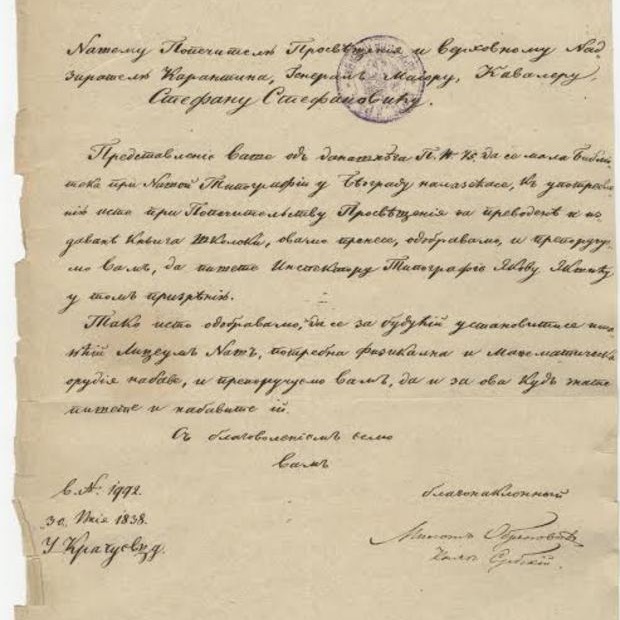 Нашему Попечителю Просвѣщенія и верховному Над
зирателю Карантина, Генералъ Маіору, Кавалеру,
Стефану Стефановићу.
Представленіє Ваше одъ данашнѣга П. № 75. да се мала Библіо
тека при Нашой Типографіи у Бѣограду налазећасе, къ употребле
нію исто при Попечительству Просвѣщенія за преводенѣ и из
даванѣ Книга Школски, овамо пренесе, одобравамо, и препоручу
мо Вамъ, да пишете Инспектору Типографіє
у томъ призрѣнію.
Тако исто одобравамо, да се за будућій установитисе
Лицеумъ Нашъ, потребна Физикална и Математическа
орудія набаве, и препоручуємо Вамъ, да и за ова кудъ знате
пишете и набавите ій.
Съ благоволеніємъ єсмо
Вамъ
В. №: 1992.
30. 1838.
У Крагуєвцу.
благонаклонный
Милошъ Обреновићъ
Князь Србскій.